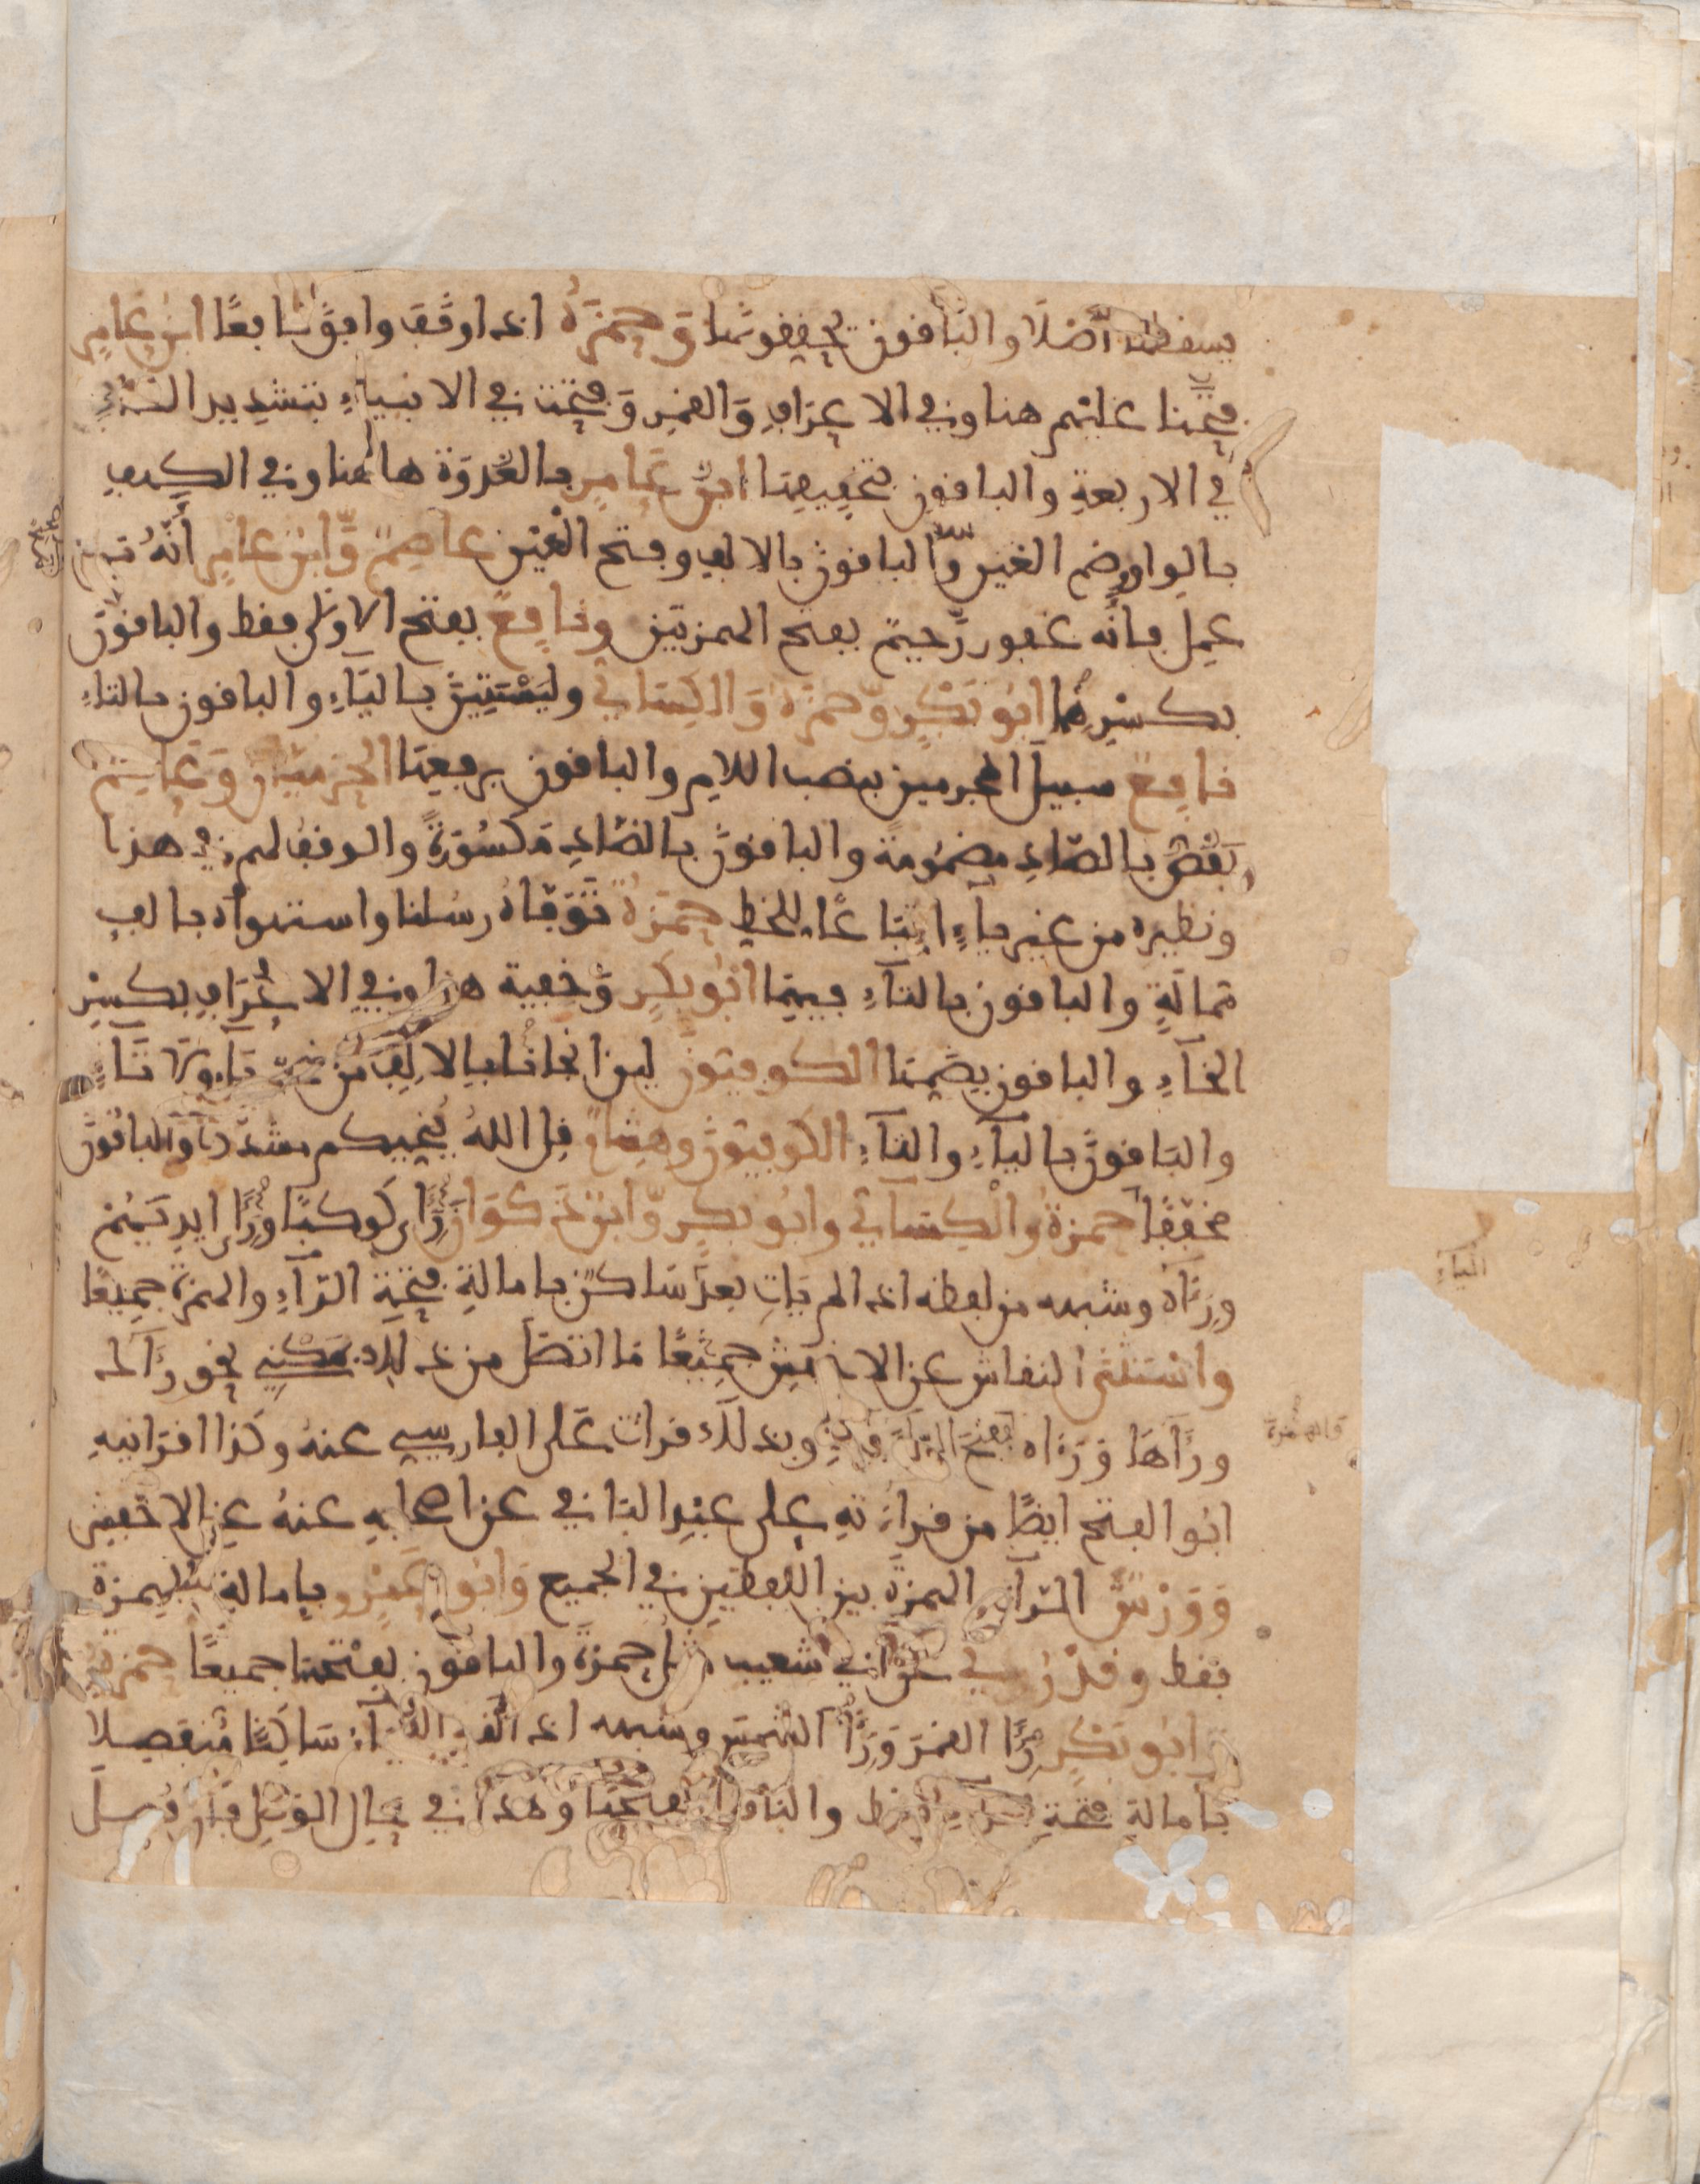 يسقطها أصْلًا والبَاقون يحققونها وَحمزَةُ اذا وقَفَ وافقَ نافعًا ابن عامِرٍ
فتّحنا عليهم هنا وفي الاعرَافِ وَالقمَر وَفُتِحَت في الانبياءِ بتشدِيد التاءِ
في الاربعةِ والباقون بتخفِيفِهَا ابنُ عَامِرٍ بالغُدْوَة هاهنا وفي الكهفِ
بالواو وضم الغين وَالباقون بالالف وفتح الغَين عاصِمٌ وَّابن عامِرٍ أنَّهُ من
عمِل فأنّه غفور رّحيمٌ بفتح الهمزتين ونافعٌ بفتح الاولى فقط والباقون
بكسْرِهِمَا ابُو بَكْرٍ وّحمزَةُ وَالكِسَائي وليَسْتَبِينَ باليَاءِ والباقون بالتاءِ
نافِعٌ سبيلَ المجرمين بنصب اللامِ والباقون برفعِهَا الحرميَّانِ وَعَاصِمٌ
يَقُصُّ بالصّادِ مضمُومةً والباقونَ بالضّادِ مَكسُورَةً والوقف لهم في هذا
ونظيره من غير ياءٍ اتّبَاعًا لِلخط حمزَةُ تَوَفّاهُ رسُلنا واستهواه بالفٍ
ممالَةٍ والباقون بالتاءِ فيهِمَا ابُو بكرٍ وَّخِفية هنا وفي الاعْرَافِ بكسْرِ
الخَاءِ والباقون بضمّهَا الكوفيّون لين انجانا بالالِفِ من غير يَاءٍ وّلَا تَاءٍ
والبَاقونَ باليَاءِ والتاءِ الكوفيّونَ وهشامٌ قل اللهُ يُنَجّيكم مشدّدا وَّالباقونَ
مخفّفًا حمزةُ وَالْكِسَائي وابُو بكرٍ وّابن ذَكوَانَ رَءَا كَوكبًا وَرَءَا ايدِيَهُم
ورَءَاه وشبهه من لفظه اذا لم يَاتِ بعدَه سَاكنٌ بامالةِ فتحَةِ الرّاءِ والهمزةِ جميعًا
واسْتَثنى النقاش عن الاخفش جمِيعًا مَا اتّصَلَ من ذلك بمَكني نحو رَءَاك
ورَءَاهَا وَرَءَاه بفتح الرّاءِ وبذلك قرات عَلى الفارسي عنهُ وكذا اقرانيهِ
ابُو الفتح ايضًا من قراءتِهِ على عبْدِ البَاقي عن اصحابِهِ عنهُ عن الاخفش
وَوَرْشٌ الرّاءَ والهمزَةَ بين اللفظَين في الجميع وَابُو عَمْرٍو بامالة الهمزة
فقط وقدْ رُوي عن ابي شعيب مثل حمزةَ والباقون بفتحهما جميعًا حمزةُ
وَابُو بَكْرٍ رَءَا القمَرَ وَرَءَا الشمسَ وشبهه اذا لَقِيَتِ اليَاءُ سَاكِنًا مُنفَصِلا
بامالةِ فتحةِ الرّاءِ فقط والباقون بفتحهَا وهذا في حال الوَصل فان فُصِلَ
الياءِ